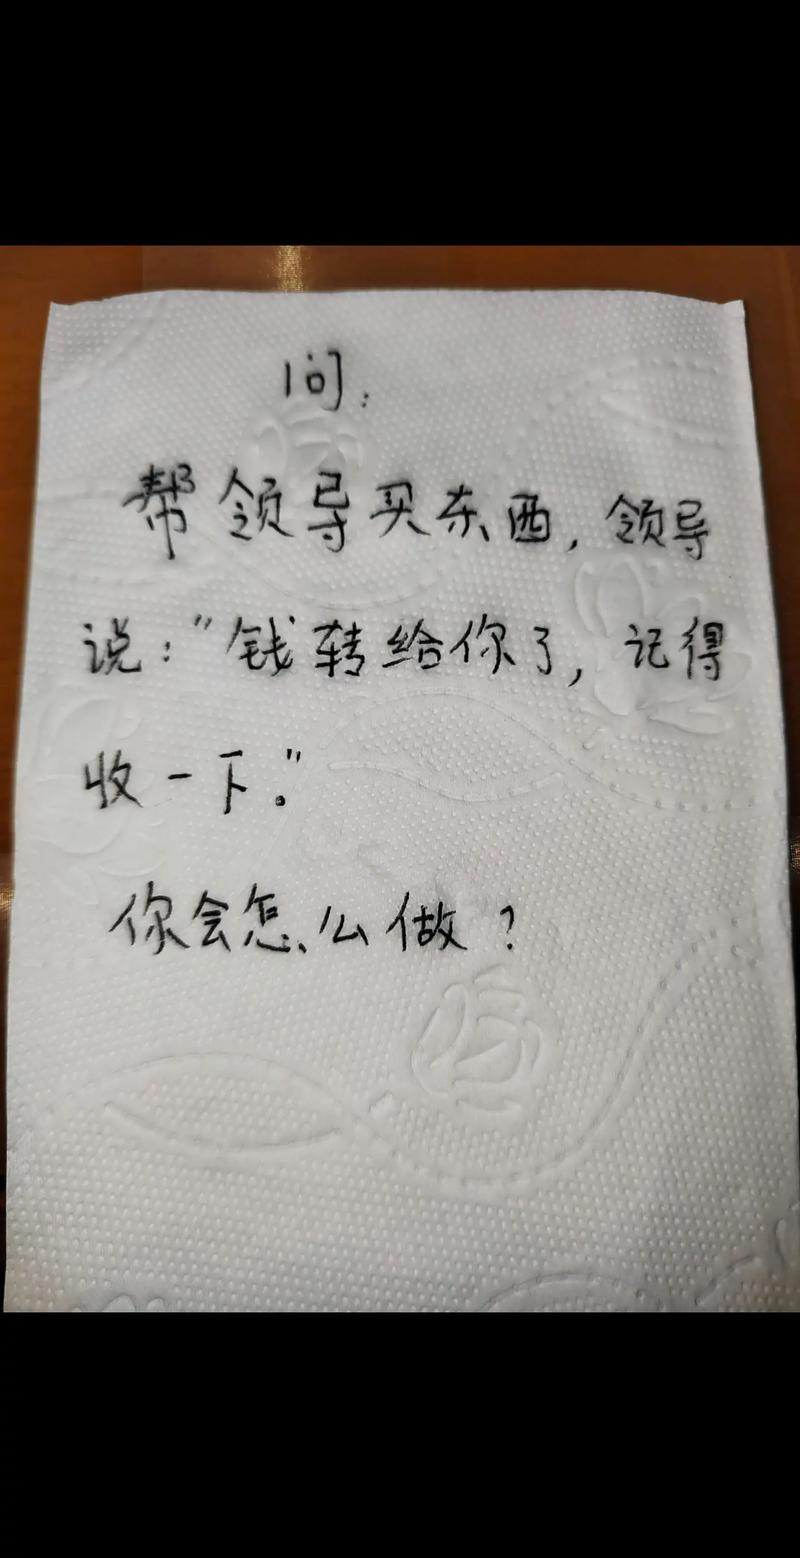 问：
帮领导买东西，领导
说："钱转给你了，记得
收一下。"
你会怎么做？